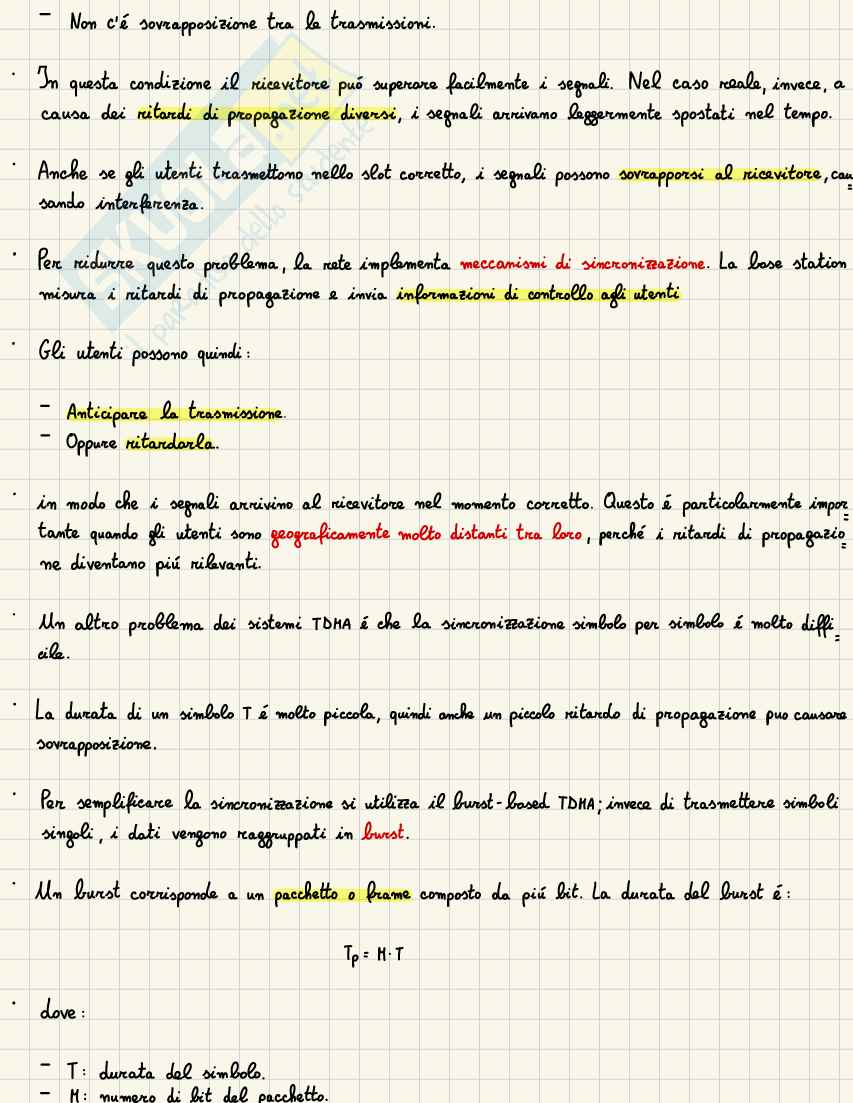 - Non c'é sovrapposizione tra le trasmissioni.
· In questa condizione il ricevitore puó superare facilmente i segnali. Nel caso reale, invece, a
causa dei ritardi di propagazione diversi, i segnali arrivano leggermente spostati nel tempo.
· Anche se gli utenti trasmettono nello slot corretto, i segnali possono sovrapporsi al ricevitore, cau
sando interferenza.
· Per ridurre questo problema, la rete implementa meccanismi di sincronizzazione. La base station
misura i ritardi di propagazione e invia informazioni di controllo agli utenti
· Gli utenti possono quindi:
- Anticipare la trasmissione.
- Oppure ritardarla.
· in modo che i segnali arrivino al ricevitore nel momento corretto. Questo é particolarmente impor
tante quando gli utenti sono geograficamente molto distanti tra loro, perché i ritardi di propagazio
ne diventano piú rilevanti.
· Un altro problema dei sistemi TDMA é che la sincronizzazione simbolo per simbolo é molto diffi
cile.
· La durata di un simbolo T é molto piccola, quindi anche un piccolo ritardo di propagazione puo causare
sovrapposizione.
· Per semplificare la sincronizzazione si utilizza il burst-based TDMA; invece di trasmettere simboli
singoli, i dati vengono raggruppati in burst.
· Un burst corrisponde a un pacchetto o frame composto da piú bit. La durata del burst é:
Tp = M·T
· dove:
- T: durata del simbolo.
- M: numero di bit del pacchetto.
SKUOLA.net
il paradiso dello studente